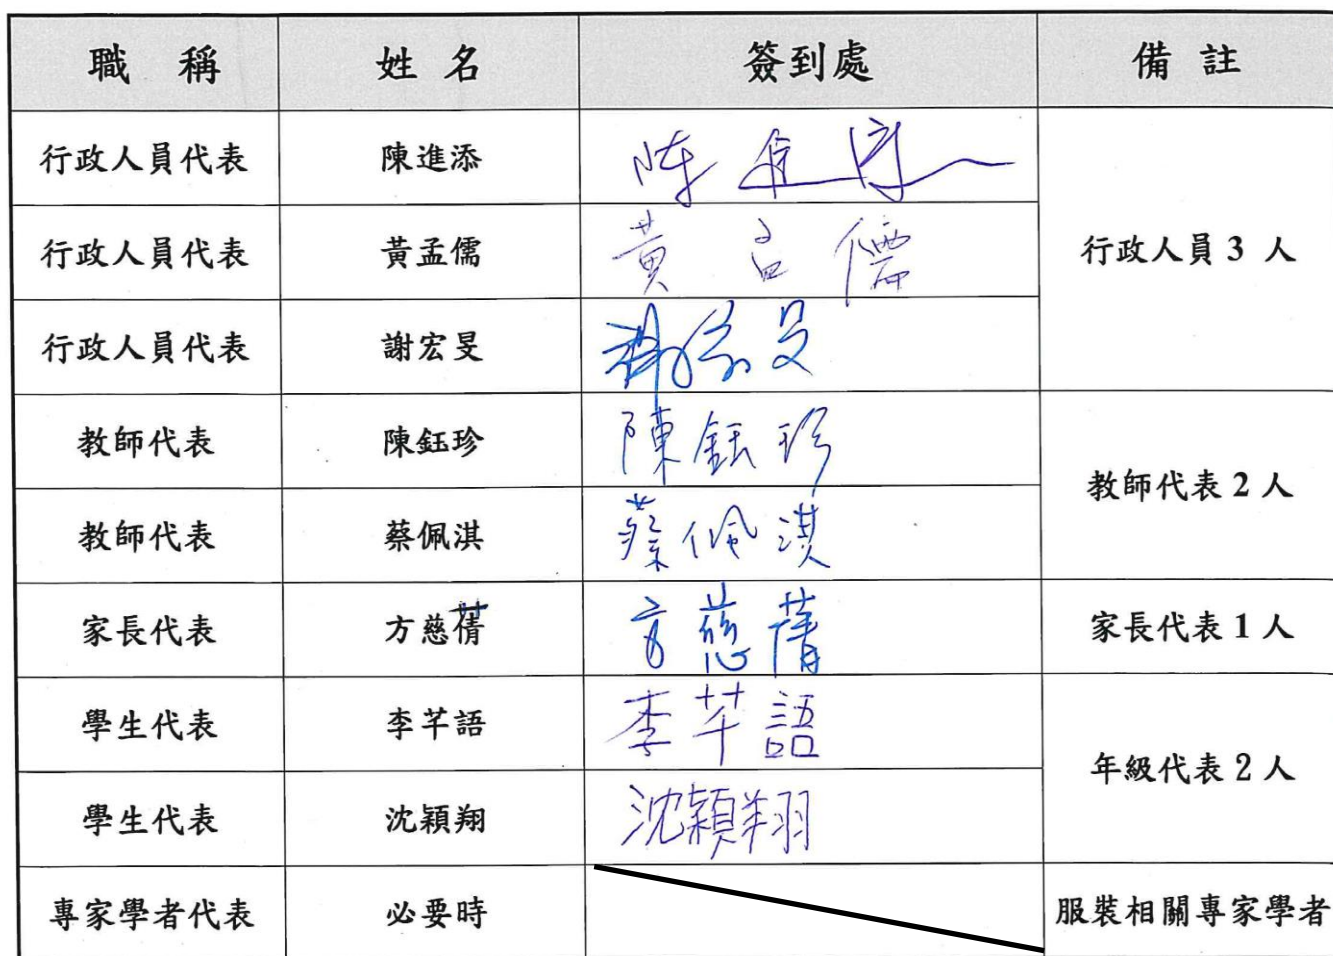 職 稱 姓 名 簽到處 備 註
行政人員代表 陳進添 陈進添
行政人員代表 黃孟儒 黃孟儒 行政人員3 人
行政人員代表 謝宏旻 謝宏旻
教師代表 陳鈺珍 陳鈺珍
教師代表2人
教師代表 蔡佩淇 蔡佩淇
家長代表 方慈蒨 方慈蒨 家長代表1人
學生代表 李芊語 李芊語
年級代表2人
學生代表 沈穎翔 沈穎翔
專家學者代表 必要時 服裝相關專家學者